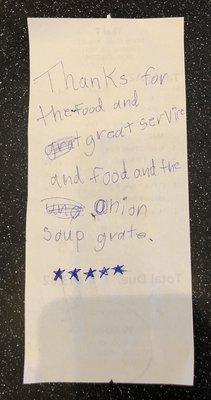 Thanks for
the food and
great service
and food and the
onion
soup grate.
★★★★★
Total Due